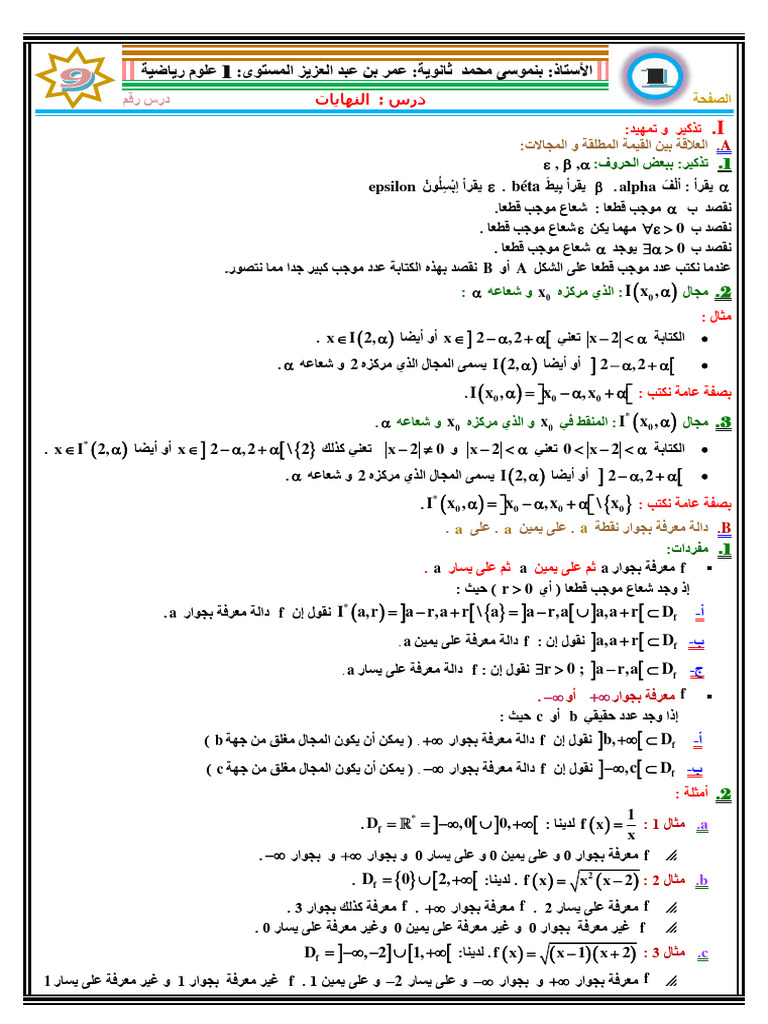 الأستاذ: بنموسى محمد ثانوية: عمر بن عبد العزيز المستوى: 1 علوم رياضية
الصفحة
درس : النهايات
درس رقم
9
I. تذكير و تمهيد:
A. العلاقة بين القيمة المطلقة و المجالات:
1. تذكير: ببعض الحروف: α , β , ε
α يقرأ : أَلْفَ alpha. β يقرأ بِيطَ béta . ε يقرأ إِبْسِلُونْ epsilon
نقصد ب α موجب قطعا : شعاع موجب قطعا.
نقصد ب ∀ε > 0 مهما يكن ε شعاع موجب قطعا .
نقصد ب ∃α > 0 يوجد α شعاع موجب قطعا .
عندما نكتب عدد موجب قطعا على الشكل A أو B نقصد بهذه الكتابة عدد موجب كبير جدا مما نتصور.
2. مجال I(x₀,α) : الذي مركزه x₀ و شعاعه α :
مثال :
• الكتابة |x−2| < α تعني x ∈ ]2−α,2+α[ أو أيضا x ∈ I(2,α) .
• ]2−α,2+α[ أو أيضا I(2,α) يسمى المجال الذي مركزه 2 و شعاعه α .
بصفة عامة نكتب : I(x₀,α) = ]x₀−α,x₀+α[ .
3. مجال I*(x₀,α) : المنقط في x₀ و الذي مركزه x₀ و شعاعه α .
• الكتابة 0 < |x−2| < α تعني |x−2| < α و |x−2| ≠ 0 تعني كذلك x ∈ ]2−α,2+α[ \ {2} أو أيضا x ∈ I*(2,α) .
• ]2−α,2+α[ أو أيضا I(2,α) يسمى المجال الذي مركزه 2 و شعاعه α .
بصفة عامة نكتب : I*(x₀,α) = ]x₀−α,x₀+α[ \ {x₀} .
B. دالة معرفة بجوار نقطة a . على يمين a . على a .
1. مفردات:
▪ f معرفة بجوار a ثم على يمين a ثم على يسار a .
إذ وجد شعاع موجب قطعا ( أي r > 0 ) حيث :
أ- I*(a,r) = ]a−r,a+r[ \ {a} = ]a−r,a[ ∪ ]a,a+r[ ⊂ Df نقول إن f دالة معرفة بجوار a .
ب- ]a,a+r[ ⊂ Df نقول إن : f دالة معرفة على يمين a .
ج- ∃r > 0 ; ]a−r,a[ ⊂ Df نقول إن : f دالة معرفة على يسار a .
▪ f معرفة بجوار +∞ أو −∞ .
إذا وجد عدد حقيقي b أو c حيث :
أ- ]b,+∞[ ⊂ Df نقول إن f دالة معرفة بجوار +∞ . ( يمكن أن يكون المجال مغلق من جهة b )
ب- ]−∞,c[ ⊂ Df نقول إن f دالة معرفة بجوار −∞ . ( يمكن أن يكون المجال مغلق من جهة c )
2. أمثلة :
a. مثال 1 : f(x) = 1/x لدينا : Df = ℝ* = ]−∞,0[ ∪ ]0,+∞[ .
f معرفة بجوار 0 و على يمين 0 و على يسار 0 و بجوار +∞ و بجوار −∞ .
b. مثال 2 : f(x) = √(x²(x−2)) . لدينا: Df = {0} ∪ [2,+∞[ .
f معرفة على يسار 2 . f معرفة بجوار +∞ . f معرفة كذلك بجوار 3 .
f غير معرفة بجوار 0 و غير معرفة على يمين 0 وغير معرفة على يسار 0 .
c. مثال 3 : f(x) = √((x−1)(x+2)) . لدينا: Df = ]−∞,−2] ∪ [1,+∞[
f معرفة بجوار +∞ و بجوار −∞ و على يسار −2 و على يمين 1 . f غير معرفة بجوار 1 و غير معرفة على يسار 1